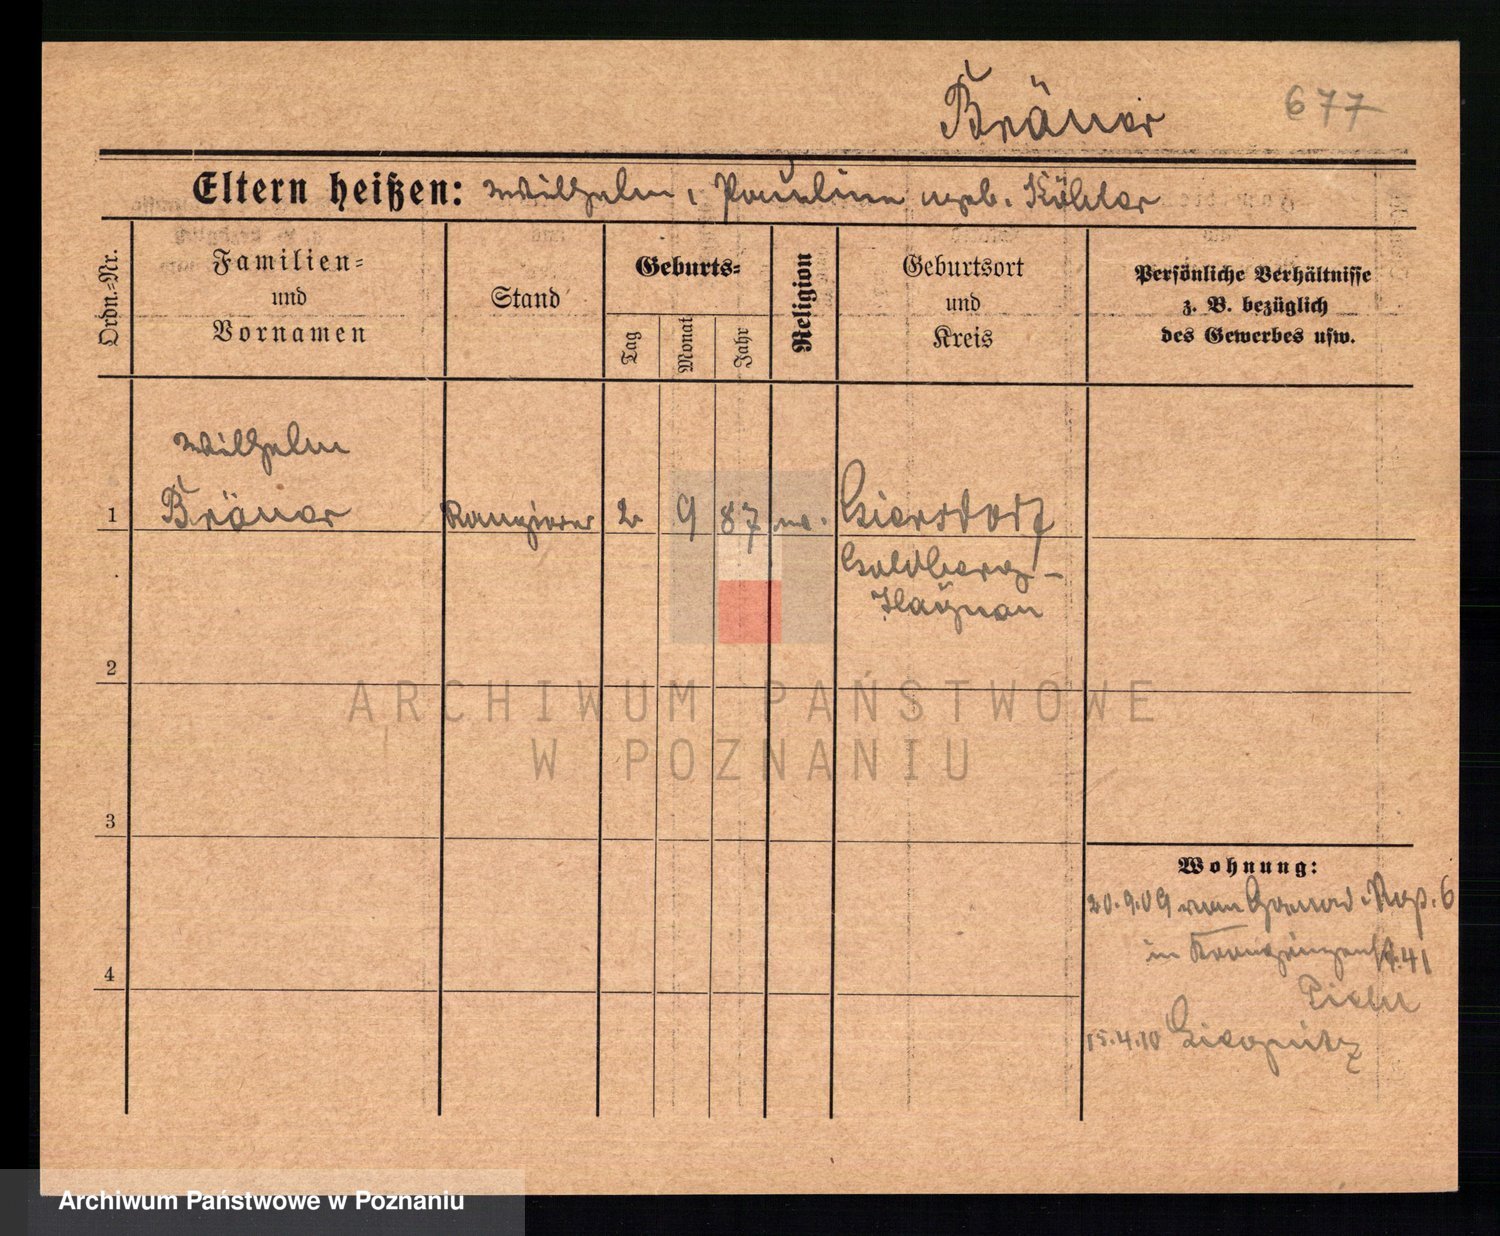 Bräuer 677
Eltern heißen: Wilhelm, Pauline geb. Köhler
Ordn.-Nr.
Familien-
und
Vornamen
Stand
Geburts-
Tag
Monat
Jahr
Religion
Geburtsort
und
Kreis
Persönliche Verhältnisse
z. B. bezüglich
des Gewerbes usw.
Wilhelm
1 Bräuer Rangierer 2 9 87 Giersdorf
Goldberg-
Haynau
2
3
4
Wohnung:
20.9.09 6
in 41
15.4.10 Liegnitz
ARCHIWUM PAŃSTWOWE
W POZNANIU
Archiwum Państwowe w Poznaniu